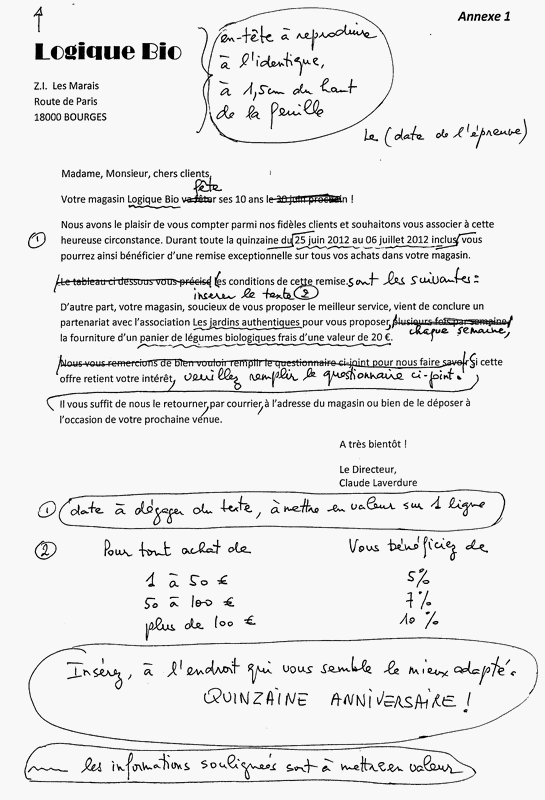 Annexe 1
Logique Bio
en-tête à reproduire
à l'identique,
à 1,5cm du haut
de la feuille
Z.I. Les Marais
Route de Paris
18000 BOURGES
Le (date de l'épreuve)
Madame, Monsieur, chers clients,
fête
Votre magasin Logique Bio va fêter ses 10 ans le 30 juin prochain !
Nous avons le plaisir de vous compter parmi nos fidèles clients et souhaitons vous associer à cette
① heureuse circonstance. Durant toute la quinzaine du 25 juin 2012 au 06 juillet 2012 inclus, vous
pourrez ainsi bénéficier d'une remise exceptionnelle sur tous vos achats dans votre magasin.
Le tableau ci-dessous vous précise les conditions de cette remise. sont les suivantes :
insérer le texte ②
D'autre part, votre magasin, soucieux de vous proposer le meilleur service, vient de conclure un
partenariat avec l'association Les jardins authentiques pour vous proposer, plusieurs fois par semaine,
chaque semaine,
la fourniture d'un panier de légumes biologiques frais d'une valeur de 20 €.
Nous vous remercions de bien vouloir remplir le questionnaire ci-joint pour nous faire savoir si cette
offre retient votre intérêt, veuillez remplir le questionnaire ci-joint.
Il vous suffit de nous le retourner, par courrier, à l'adresse du magasin ou bien de le déposer à
l'occasion de votre prochaine venue.
A très bientôt !
Le Directeur,
Claude Laverdure
① date à dégager du texte, à mettre en valeur sur 1 ligne
② Pour tout achat de Vous bénéficiez de
1 à 50 € 5%
50 à 100 € 7%
plus de 100 € 10%
Insérez, à l'endroit qui vous semble le mieux adapté :
QUINZAINE ANNIVERSAIRE !
les informations soulignées sont à mettre en valeur